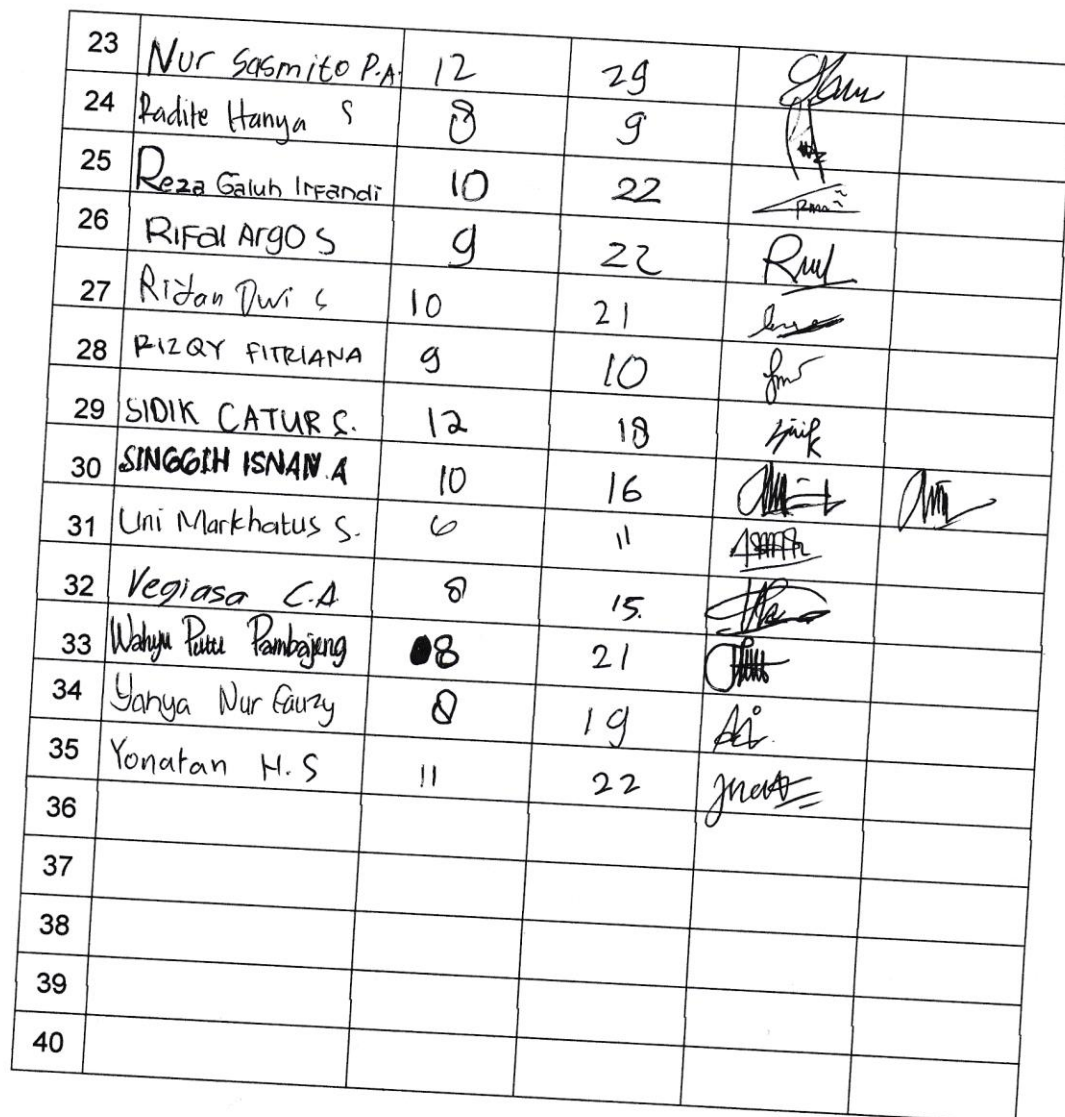 23 Nur Sasmito P.A. 12 29
24 Radite Hanya S 8 9
25 Reza Galuh Irfandi 10 22
26 RIFal ArgO S 9 22
27 Dwi S 10 21
28 RIZQY FITRIANA 9 10
29 SIDIK CATUR S. 12 18
30 SINGGIH ISNAN.A 10 16
31 Uni Markhatus S. 6 11
32 Vegiasa C.A 8 15.
33 Wahyu Putu Pambajeng 8 21
34 Yahya Nur Fauzy 8 19
35 Yonatan H.S 11 22
36
37
38
39
40